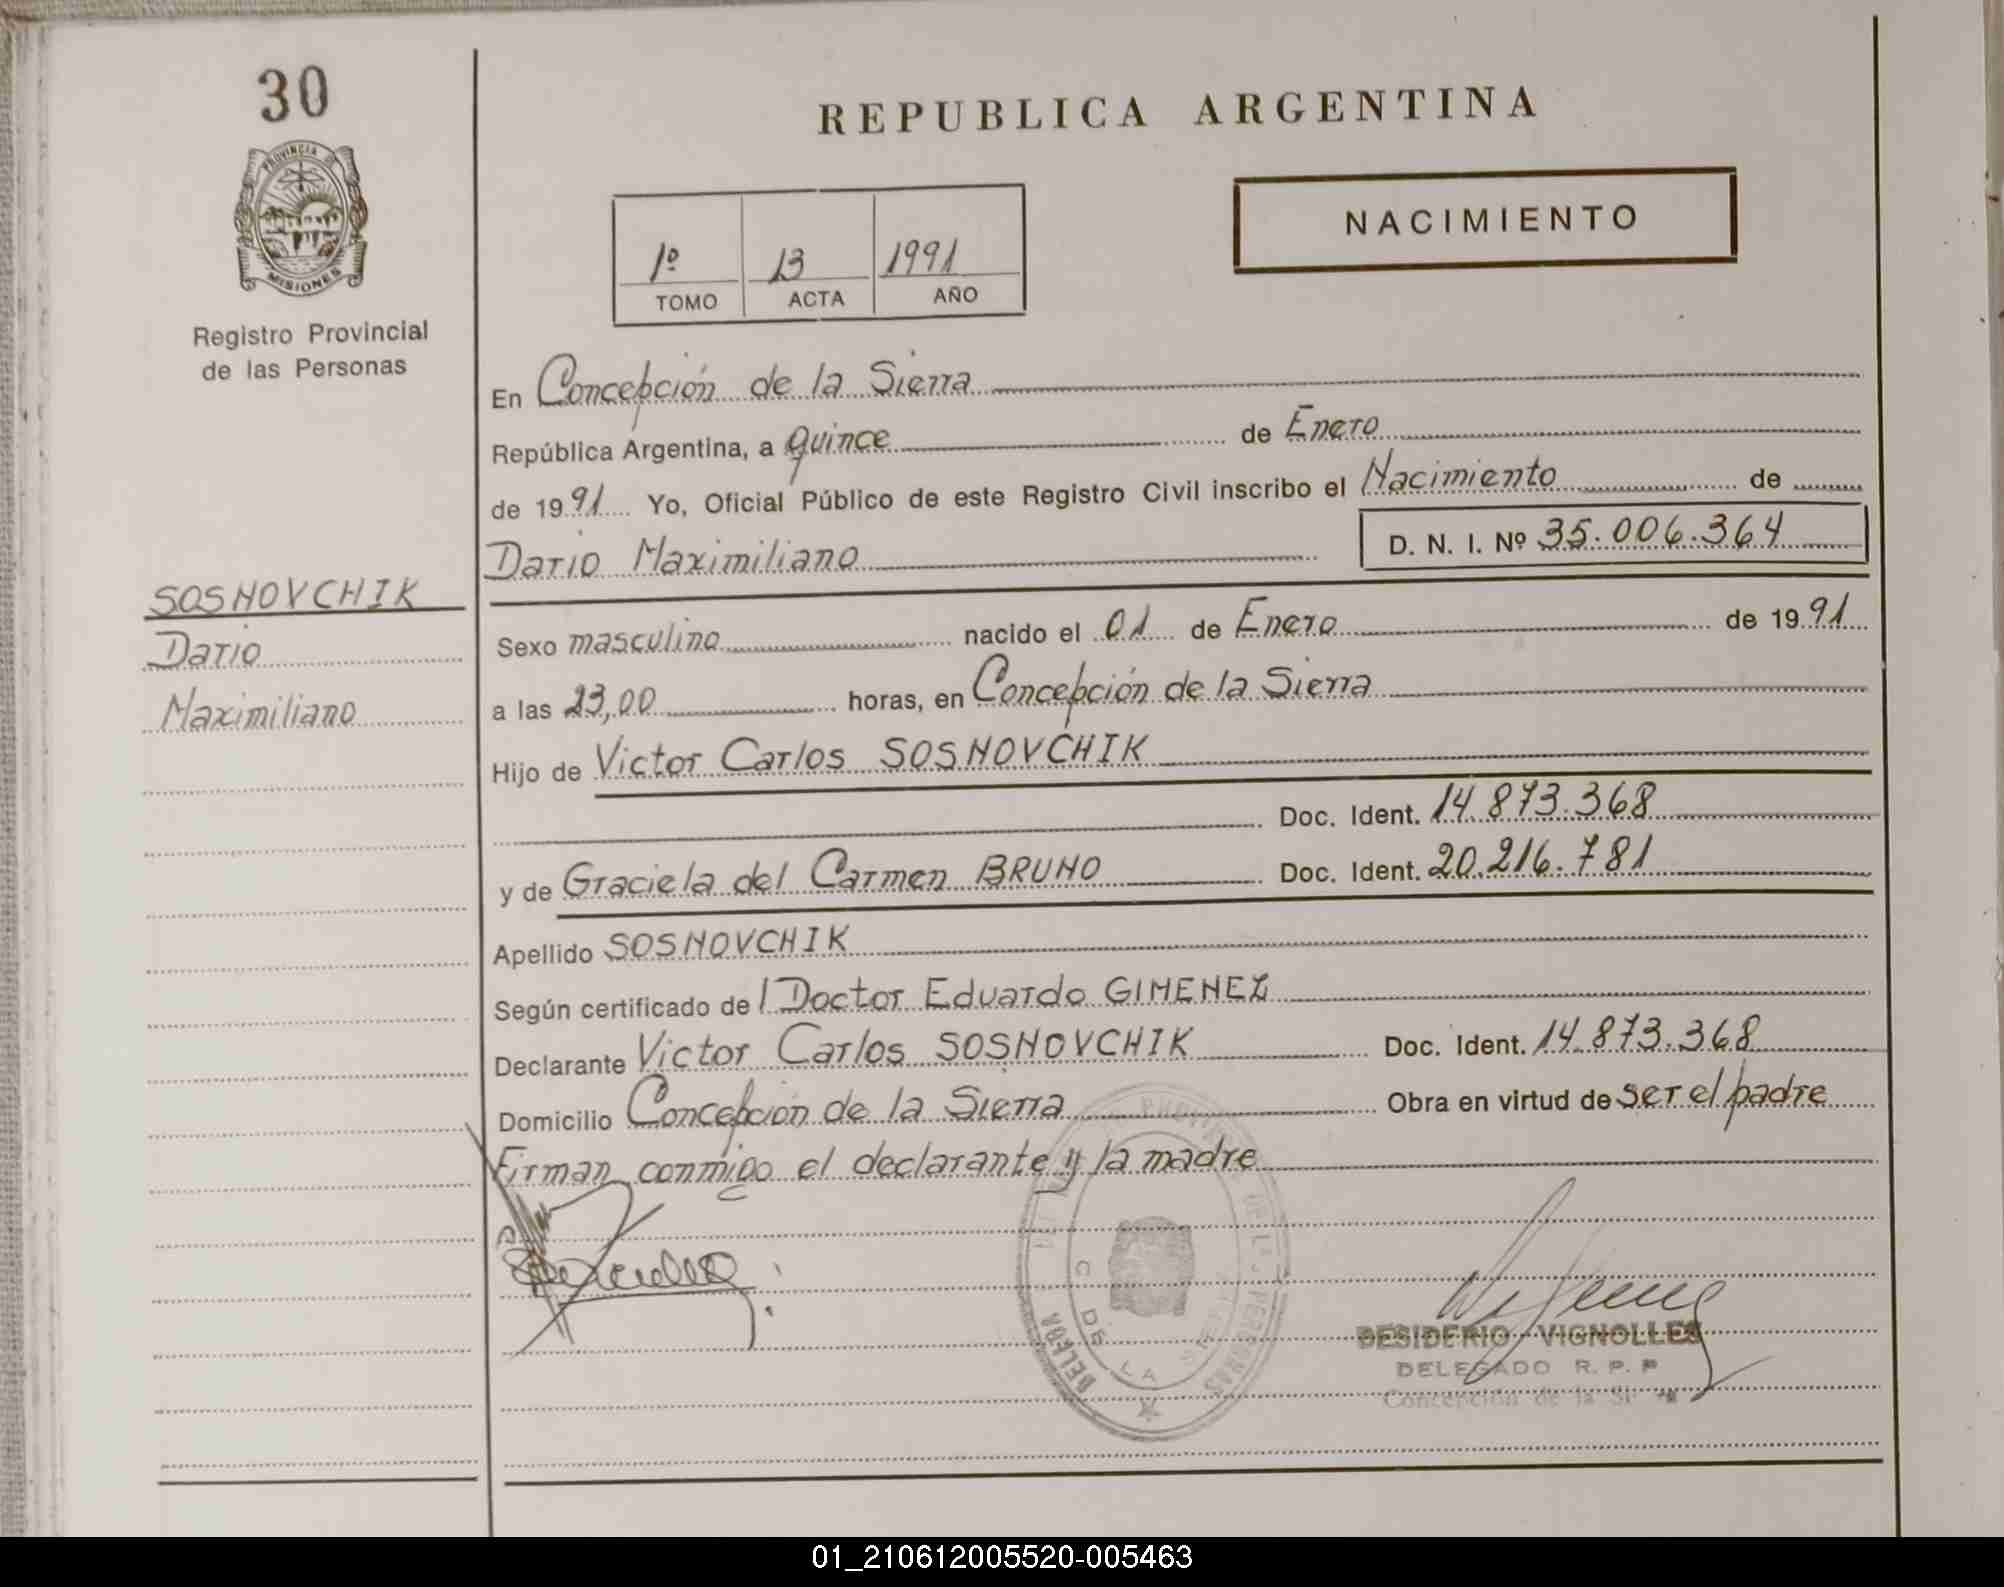 30
PROVINCIA DE
MISIONES
Registro Provincial
de las Personas
REPUBLICA ARGENTINA
NACIMIENTO
1º 13 1991
TOMO ACTA AÑO
En Concepción de la Sierra
República Argentina, a quince de Enero
de 1991 Yo, Oficial Público de este Registro Civil inscribo el Nacimiento de
Dario Maximiliano D. N. I. Nº 35.006.364
SOSNOVCHIK
Dario
Maximiliano
Sexo masculino nacido el 01 de Enero de 1991
a las 23,00 horas, en Concepción de la Sierra
Hijo de Victor Carlos SOSNOVCHIK
Doc. Ident. 14.873.368
y de Graciela del Carmen BRUNO Doc. Ident. 20.216.781
Apellido SOSNOVCHIK
Según certificado de l Doctor Eduardo GIMENEZ
Declarante Victor Carlos SOSNOVCHIK Doc. Ident. 14.873.368
Domicilio Concepción de la Sierra Obra en virtud de ser el padre
Firman conmigo el declarante y la madre
DESIDERIO VIGNOLLES
DELEGADO R. P. P
Concepción de la
01_210612005520-005463